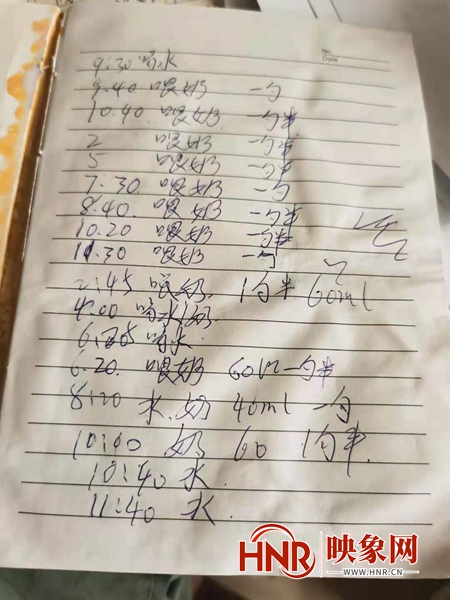 No.
Date
9:30 喝水
9.40 喂奶 一勺
10.40. 喂奶 一勺半
2 喂奶 一勺半
5 喂奶 一勺半
7.30 喂奶 一勺
8.40. 喂奶 一勺半
10.20 喂奶 一勺半
11.30 喂奶 一勺
2:45 喂奶 1勺半 60ml
4:00 喝水/奶
喝水
6.20. 喂奶 60 一勺半
8:20 水.奶 40ml 一勺
10:40 奶 60 1勺半.
10:40 水.
11:40 水.
HNR 映象网
WWW.HNR.CN